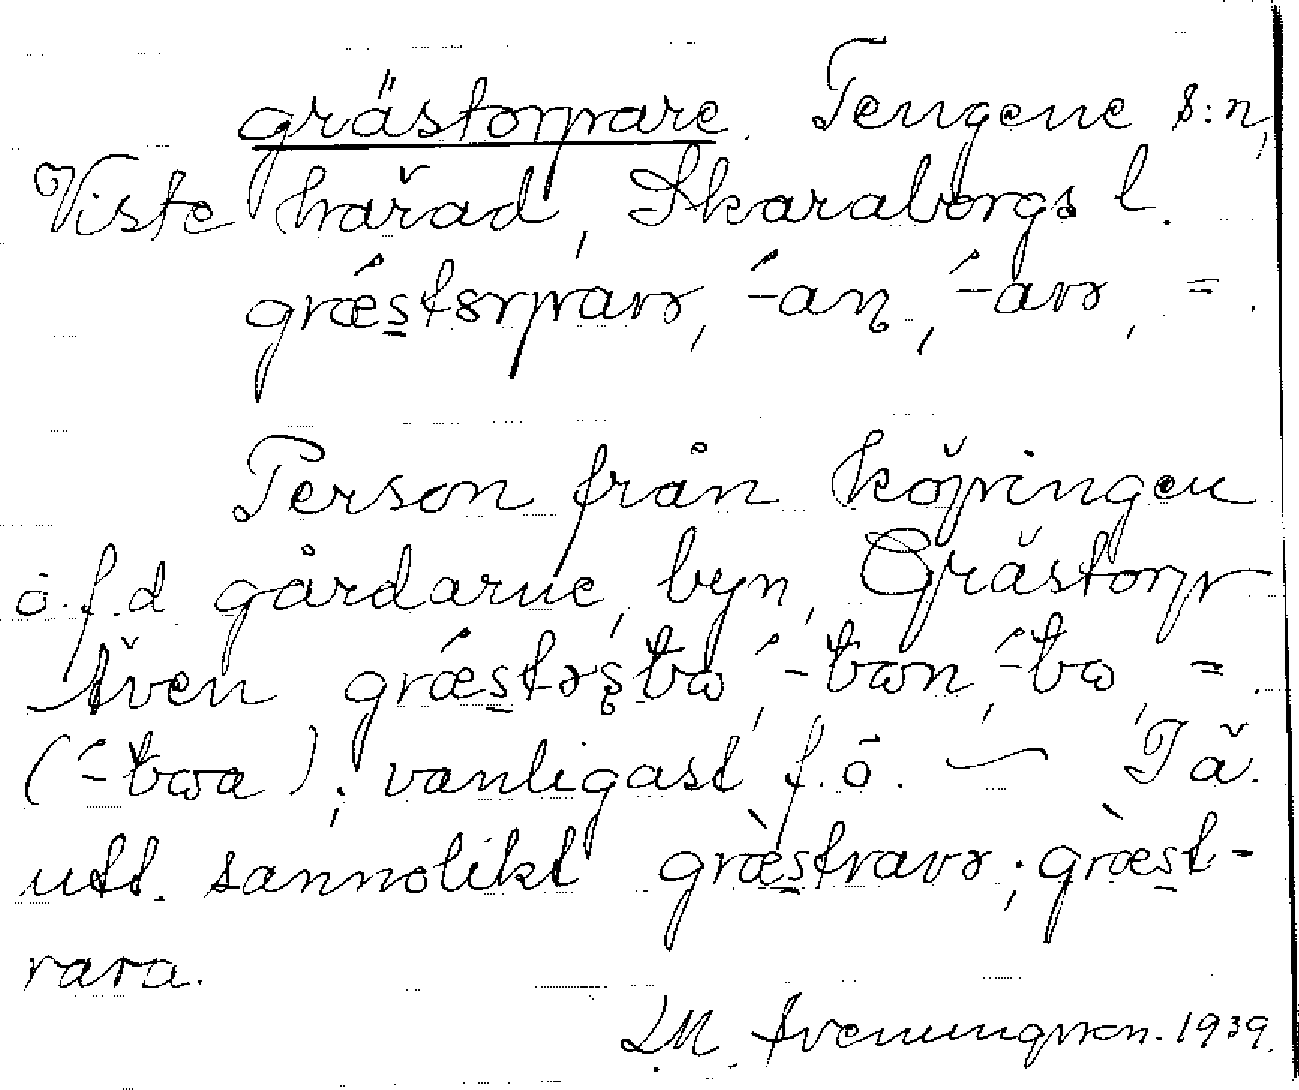 grästorpare. Tengene s:n,
Viste härad, Skaraborgs l.
græ´storparə, ´-aṇ, ´-arə, =.
Person från köpingen
o. f.d gårdarne, byn, Grästorp
Även græ´stərs ´-bon, ´-bo, =.
(´-boa); vanligast f.ö. — Tä.
utt. sannolikt græ`strarə; græ`st-
rara.
LM. Svenungsson. 1939.